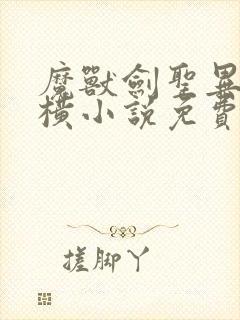 魔獸劍聖異
橫小說免費
搓脚丫